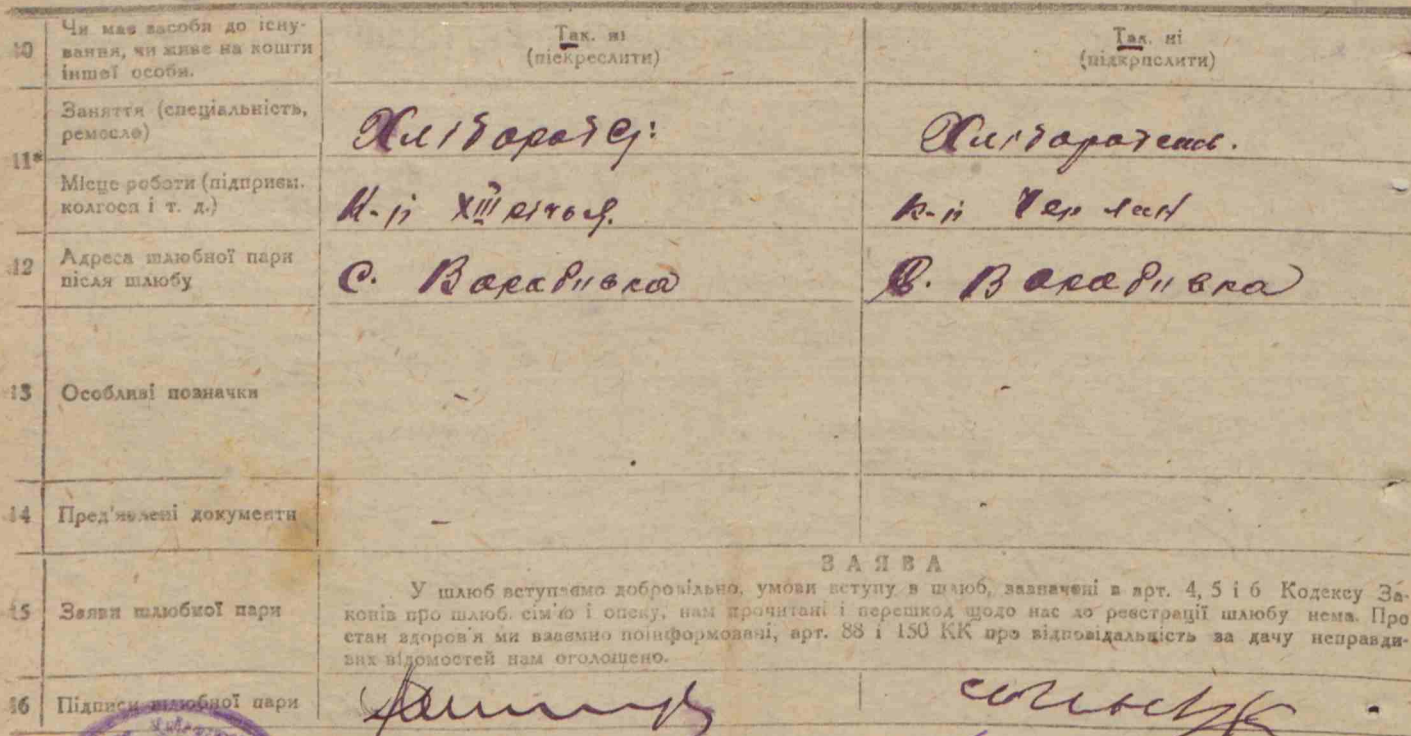 10 Чи має засоби до існу-
вання, чи живе на кошти
іншої особи.
Так. ні
(піекреслити)
Так. ні
(підкрпслити)
11* Заняття (спеціальність,
ремесло)
Місце роботи (підприєм.
колгосп і т. д.)
К-п XIII річчя
к-п
12 Адреса шлюбної пари
після шлюбу
С. Варабивка
С. Варабивка
13 Особливі позначки
-
-
14 Пред'явлені документи
-
-
15 Заяви шлюбної пари
ЗАЯВА
У шлюб вступаємо добровільно, умови вступу в шлюб, зазначені в арт. 4, 5 і 6 Кодексу За-
конів про шлюб, сім'ю і опеку, нам прочитані і перешкод щодо нас до реєстрації шлюбу нема. Про
стан здоров'я ми взаємно поінформовані, арт. 88 і 150 КК про відповідальність за дачу неправди-
вих відомостей нам оголошено.
16 Підписи шлюбної пари